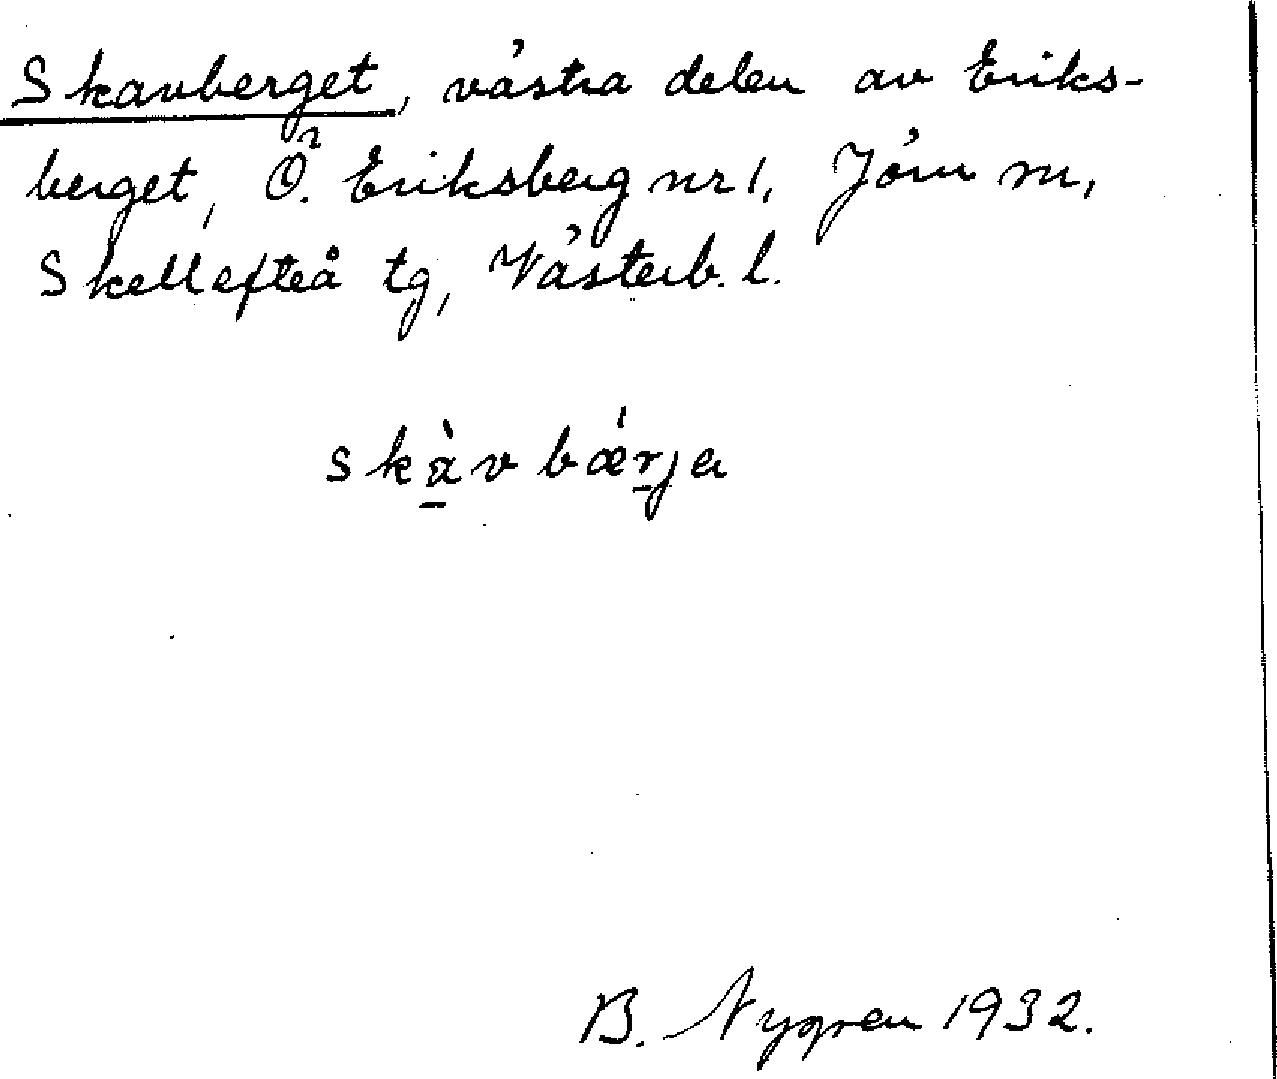 Skavberget, västra delen av Eriks-
berget, Ö. Eriksberg nr 1, Jörn sn,
Skellefteå tg, Västerb. l.
skàvbǽrja
B. Nygren 1932.